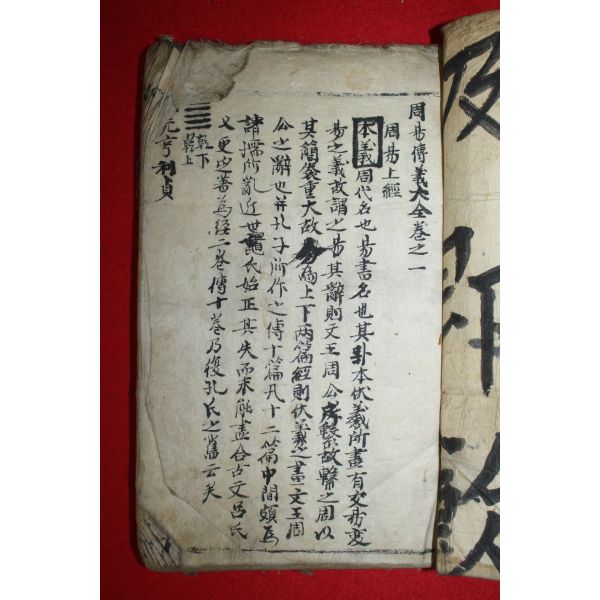 周易傳義大全卷之一
周易上經
本義周代名也易書名也其卦本伏羲所畫有交易變
易之義故謂之易其辭則文王周公所繫故繫之周以
其簡袠重大故分爲上下兩篇經則伏羲之畫文王周
公之辭也并孔子所作之傳十篇凡十二篇中間頗爲
諸儒所亂近世晁氏始正其失而未能盡合古文呂氏
又更定著爲經二卷傳十卷乃復孔氏之舊云矣
乾下
乾上
元亨利貞